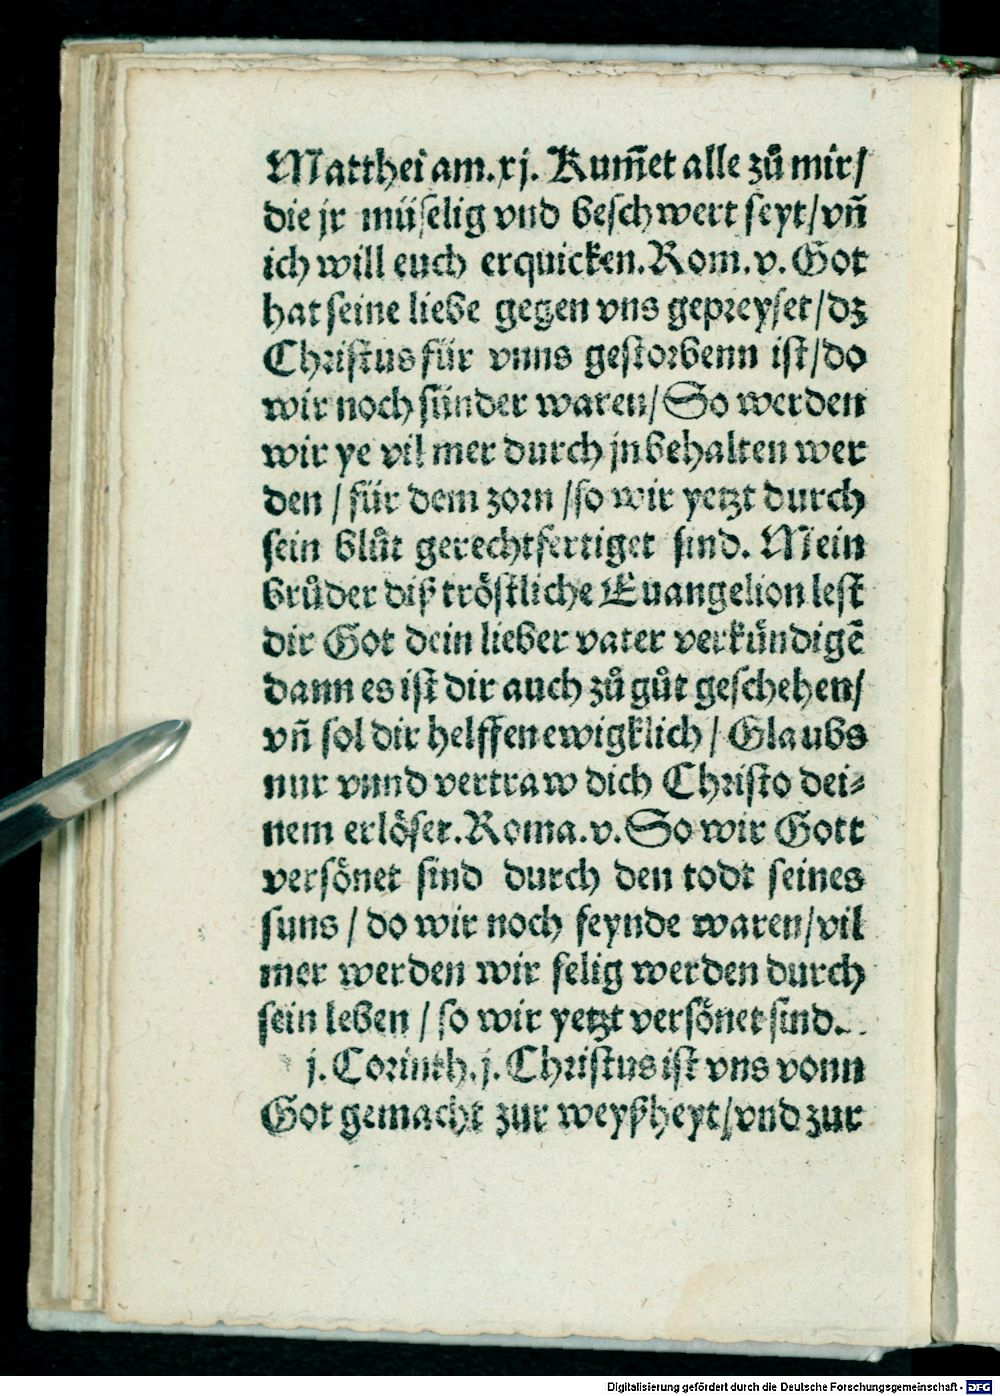 Matthei am. xj. Kum̃et alle zů mir/
die jr müſelig vnd beſchwert ſeyt/vñ
ich will euch erquicken. Rom. v. Got
hat ſeine liebe gegen vns gepreyſet/dz
Chriſtus für vnns geſtorbenn iſt/do
wir noch ſünder waren/So werden
wir ye vil mer durch jn behalten wer
den / für dem zorn /ſo wir yetzt durch
ſein blůt gerechtfertiget ſind. Mein
brůder diß tröſtliche Euangelion leſt
dir Got dein lieber vater verkündigẽ
dann es iſt dir auch zů gůt geſchehen/
vñ ſol dir helffen ewigklich / Glaubs
nur vnnd vertraw dich Chriſto dei⸗
nem erlöſer. Roma. v. So wir Gott
verſönet ſind durch den todt ſeines
ſuns / do wir noch feynde waren/vil
mer werden wir ſelig werden durch
ſein leben / ſo wir yetzt verſönet ſind.
j. Corinth. j. Chriſtus iſt vns vonn
Got gemacht zur weyßheyt/vnd zur
Digitalisierung gefördert durch die Deutsche Forschungsgemeinschaft - DFG